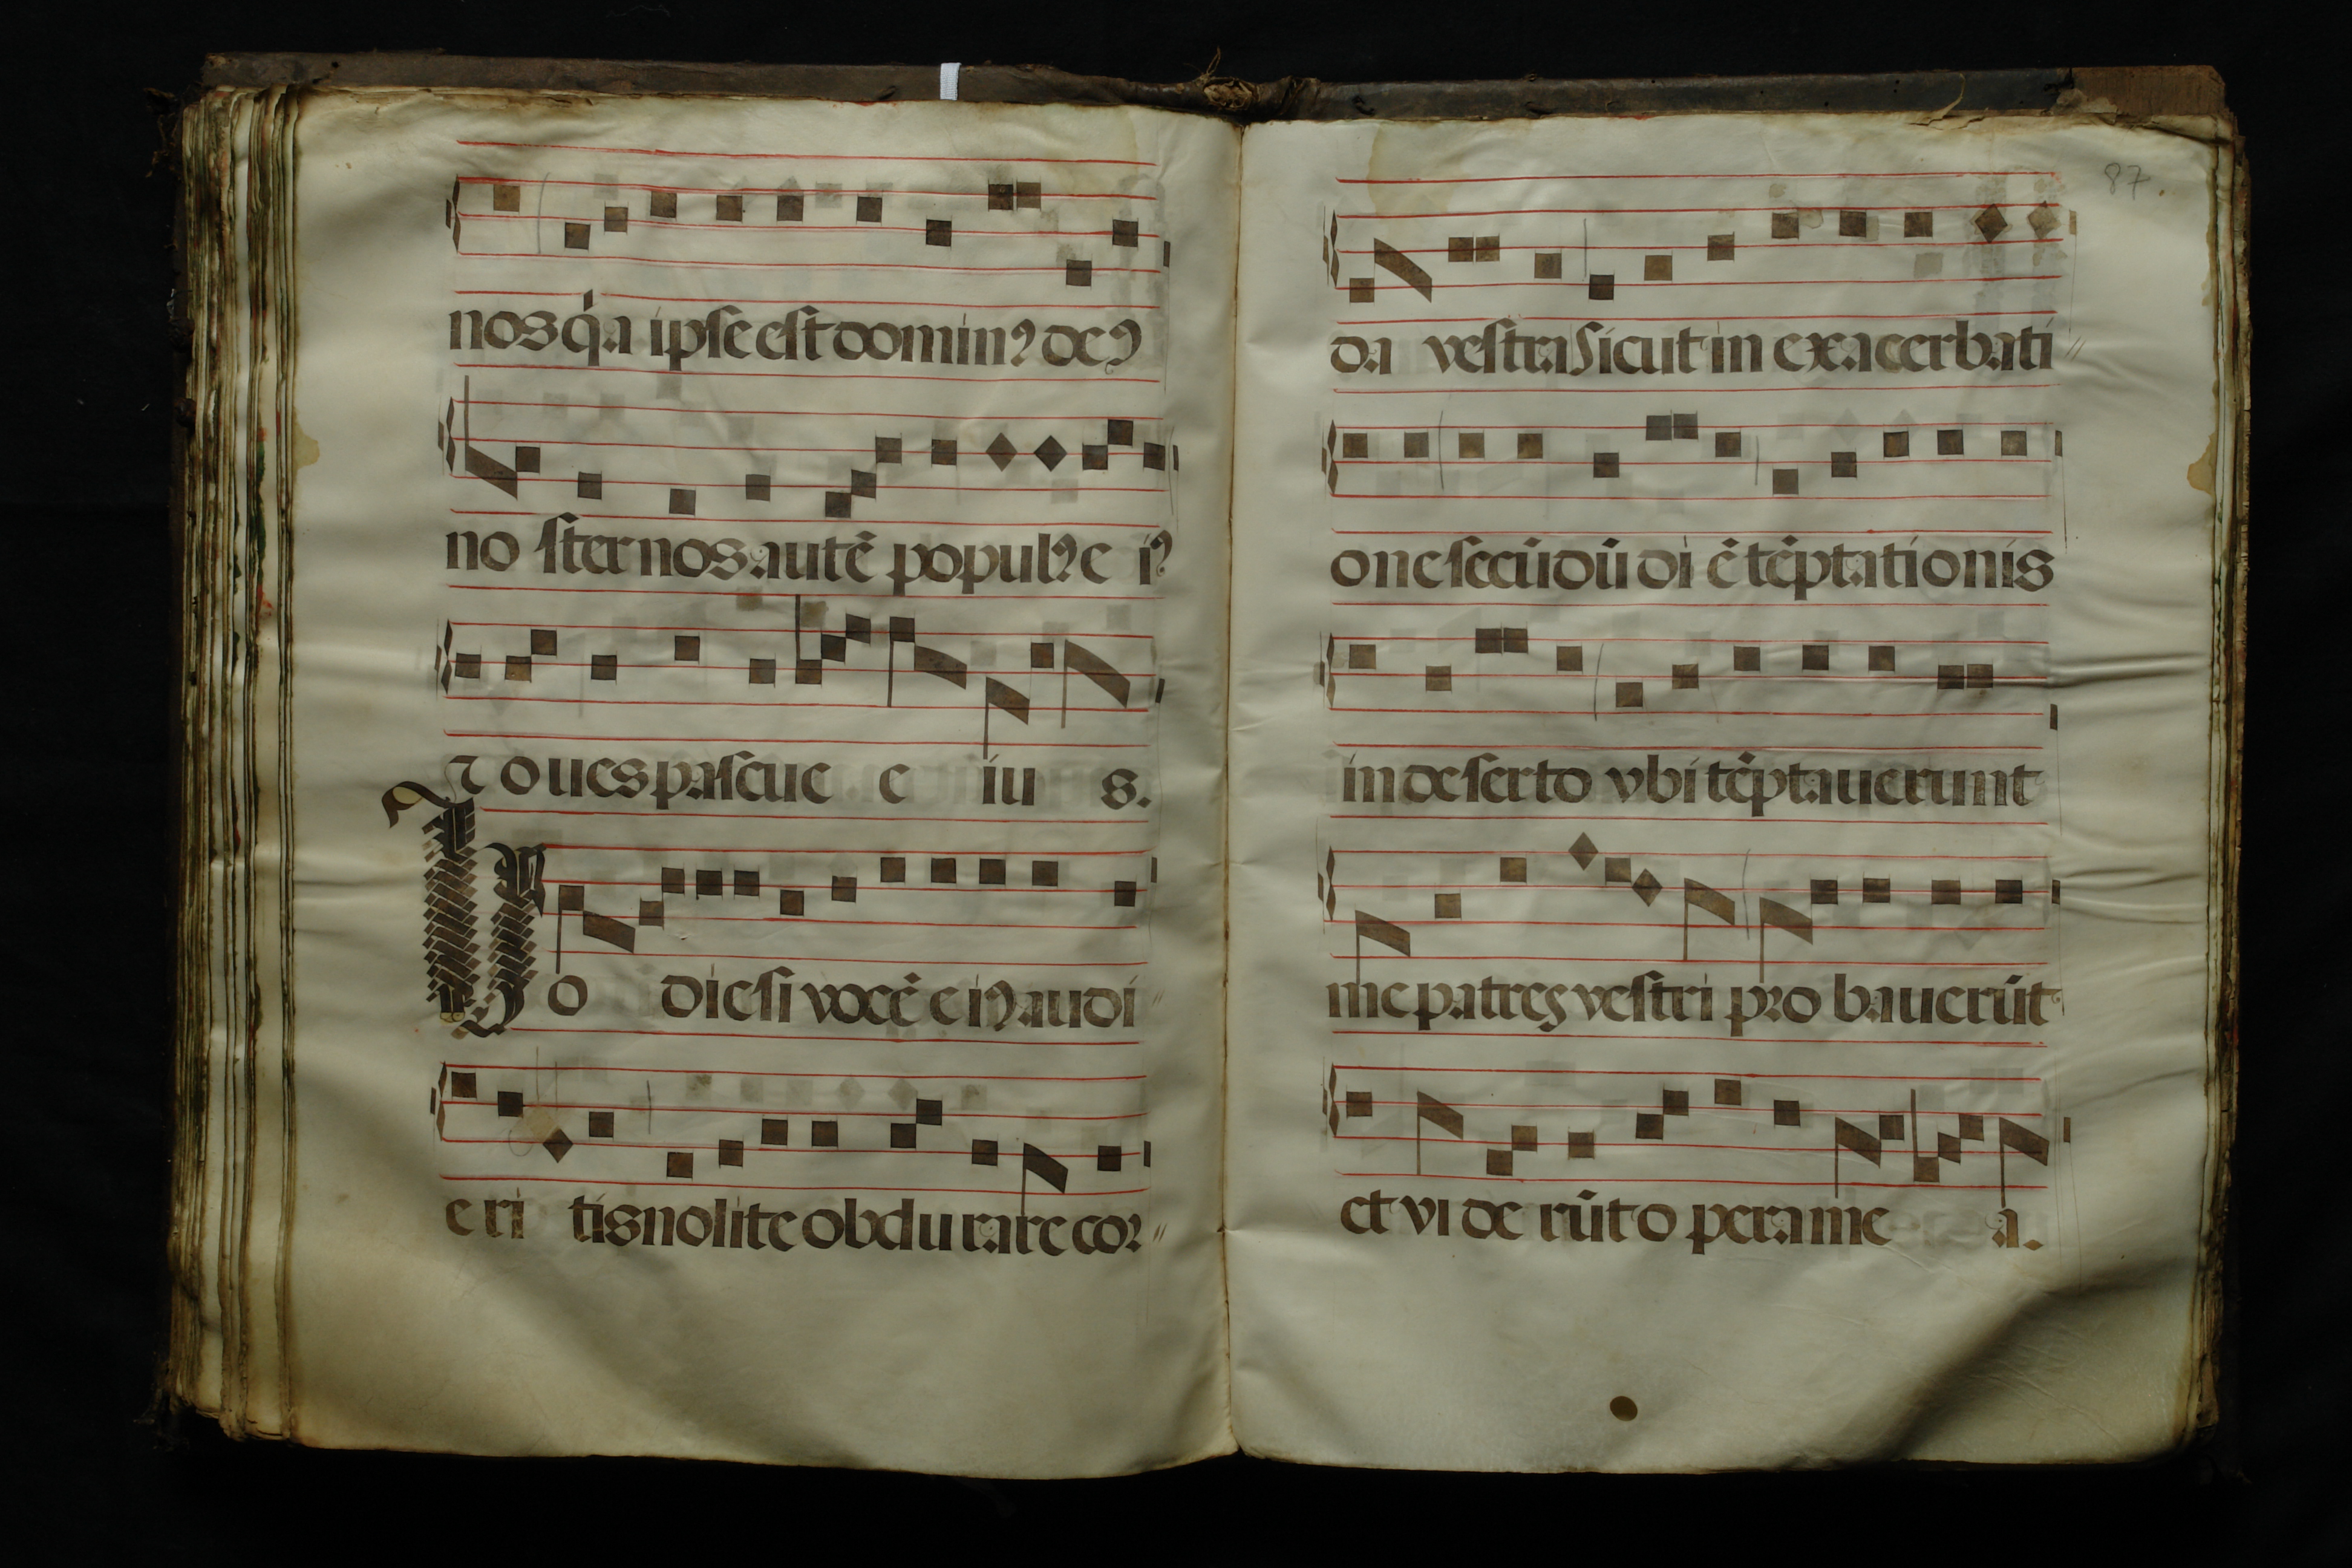 nos q́a ipse est domin⁹ de⁹
no ster nos autē popul⁹ e i⁹
⁊ oues pascue e iu s.
Ho die si vocē ei⁹ audi
e ri tis nolite obdu rare cor〃
87.
da vestra sicut in exacerbati〃
one secūdū di ē tēptationis
in deserto vbi tēptauerunt
me patres vestri pro bauerūt
et vi de rūt o pera me a.